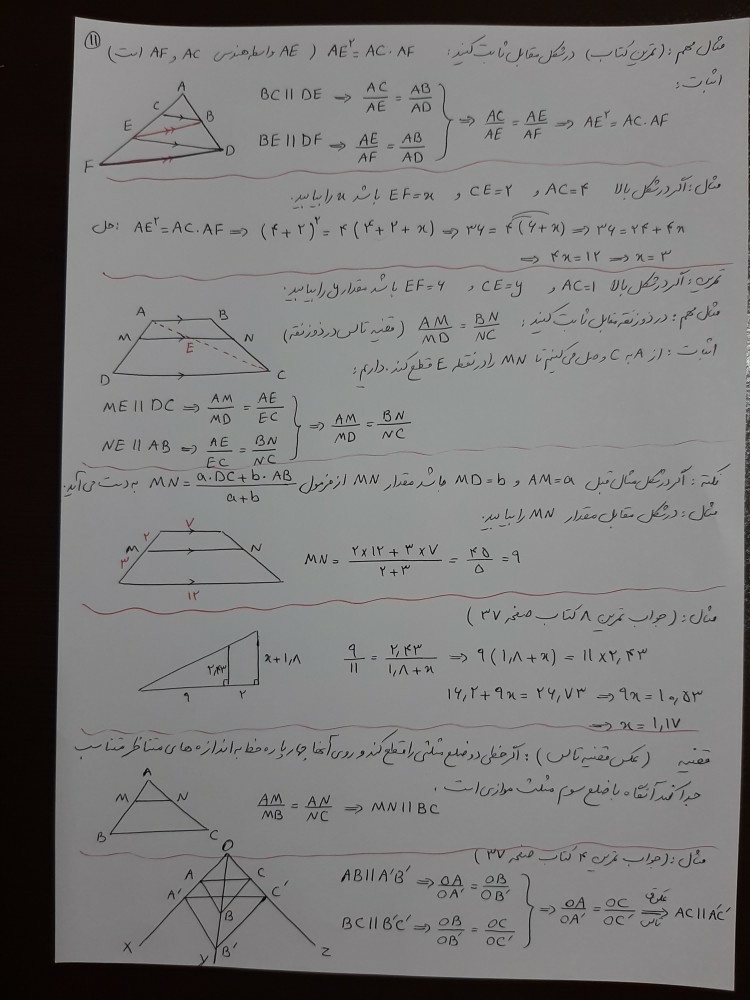 ۱۱
مثال مهم: (تمرین کتاب) در شکل مقابل ثابت کنید: AE² = AC . AF ( AE واسطه هندسی AC و AF است)
اثبات:
A
C
B
E
D
F
BC || DE ⇒ AC/AE = AB/AD
BE || DF ⇒ AE/AF = AB/AD
⇒ AC/AE = AE/AF ⇒ AE² = AC . AF
مثال: اگر در شکل بالا AC = ۴ و CE = ۲ و EF = x باشد x را بیابید.
حل: AE² = AC . AF ⇒ (۴+۲)² = ۴(۴+۲+x) ⇒ ۳۶ = ۴(۶+x) ⇒ ۳۶ = ۲۴+۴x
⇒ ۴x = ۱۲ ⇒ x = ۳
تمرین: اگر در شکل بالا AC = ۱ و CE = y و EF = ۶ باشد مقدار y را بیابید.
مثال مهم: در ذوزنقه مقابل ثابت کنید: AM/MD = BN/NC (قضیه تالس در ذوزنقه)
اثبات: از A به C وصل می‌کنیم تا MN را در نقطه E قطع کند. داریم:
A B
M N
E
D C
ME || DC ⇒ AM/MD = AE/EC
NE || AB ⇒ AE/EC = BN/NC
⇒ AM/MD = BN/NC
نکته: اگر در شکل مثال قبل AM = a و MD = b باشد مقدار MN از فرمول MN = (a . DC + b . AB)/(a+b) به دست می‌آید.
مثال: در شکل مقابل مقدار MN را بیابید.
۲ ۷
M N
۳
۱۲
MN = (۲×۱۲ + ۳×۷)/(۲+۳) = ۴۵/۵ = ۹
مثال: (جواب تمرین ۸ کتاب صفحه ۳۷)
۲,۴۳
x+۱,۸
۹ ۲
۹/۱۱ = ۲,۴۳/(۱,۸+x) ⇒ ۹(۱,۸+x) = ۱۱×۲,۴۳
۱۶,۲+۹x = ۲۶,۷۳ ⇒ ۹x = ۱۰,۵۳
⇒ x = ۱,۱۷
قضیه (عکس قضیه تالس): اگر خطی دو ضلع مثلثی را قطع کند و روی آنها چهار پاره خط به اندازه های متناظر متناسب
جدا کند آنگاه با ضلع سوم مثلث موازی است.
A
M N
B C
AM/MB = AN/NC ⇒ MN || BC
مثال: (جواب تمرین ۴ کتاب صفحه ۳۷)
O
A C
A' C'
B
B'
X Y Z
AB || A'B' ⇒ OA/OA' = OB/OB'
BC || B'C' ⇒ OB/OB' = OC/OC'
⇒ OA/OA' = OC/OC' عکس ق تالس ⇒ AC || A'C'